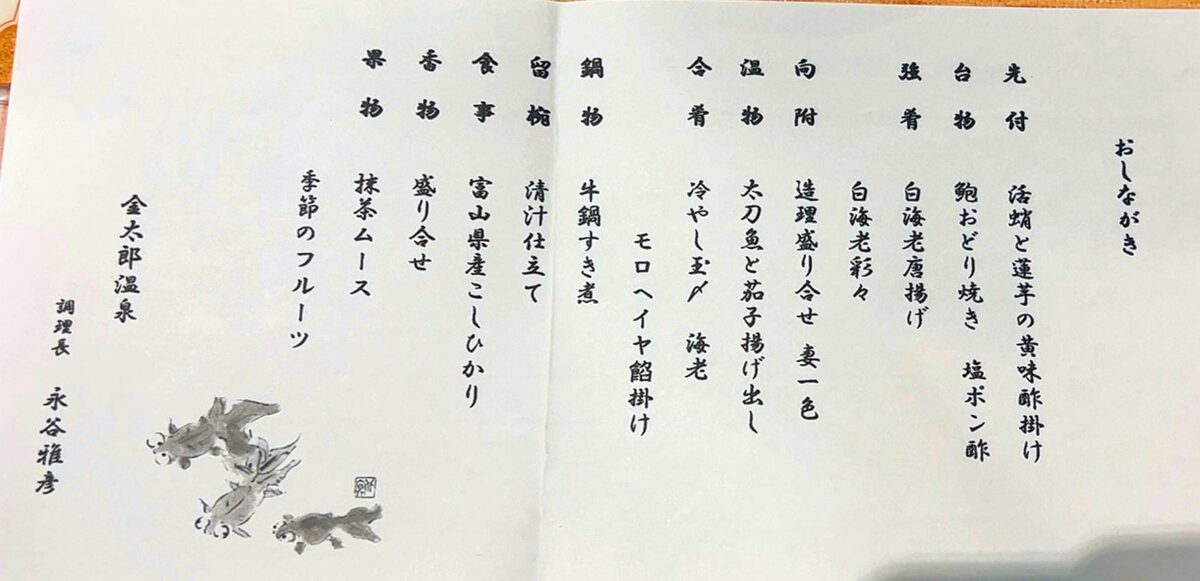 おしながき
先付 活蛸と蓮芋の黄味酢掛け
台物 鮑おどり焼き 塩ポン酢
強肴 白海老唐揚げ
白海老彩々
向附 造理盛り合せ 妻一色
温物 太刀魚と茄子揚げ出し
合肴 冷やし玉〆 海老
モロヘイヤ餡掛け
鍋物 牛鍋すき煮
留椀 清汁仕立て
食事 富山県産こしひかり
香物 盛り合せ
果物 抹茶ムース
季節のフルーツ
金太郎温泉
調理長 永谷雅彦